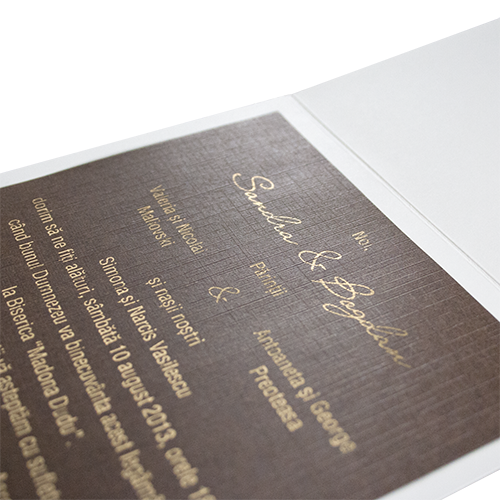 Noi,
Sandra & Bogdan
Părinții
Valeria și Nicolai
Maliovski
&
Antoaneta și George
Preoteasa
și nașii noștri
Simona și Narcis Vasilescu
dorim să ne fiți alături, sâmbătă 10 august 2013, orele 1
când bunul Dumnezeu va binecuvânta acest legăm
la Biserica "Madona Dudu".
vă așteptăm cu suflet